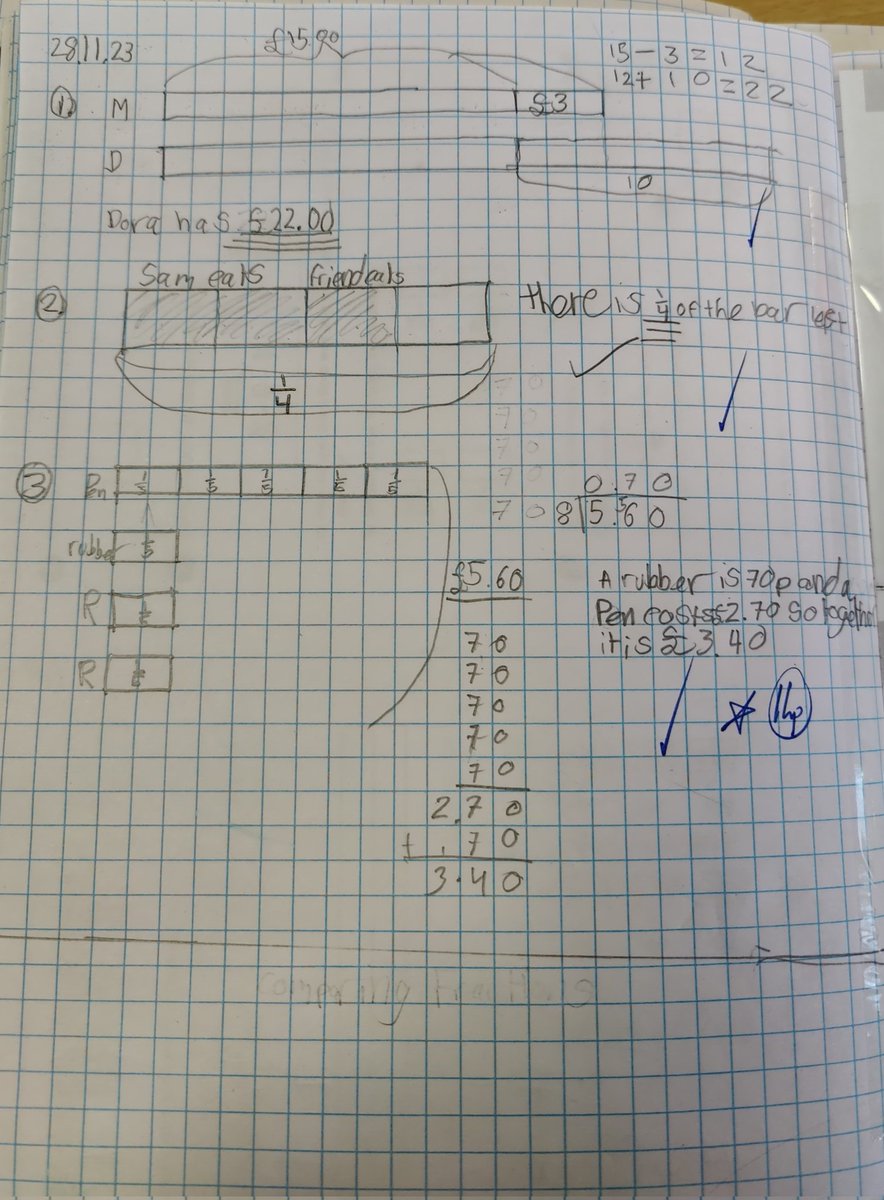 28.11.23
£15.00
15 - 3 = 12
12 + 10 = 22
① M £3
D
10
Dora has £22.00
Sam eats friend eats
②
there is 1/4 of the bar left
1/4
70
70
70
70
70
③ Pen 1/5 1/5 1/5 1/5 1/5
0.70
8 5.560
rubber 1/5
£5.60
A rubber is 70p and a
Pen costs £2.70 so together
it is £3.40
R 1/5
R 1/5
70
70
70
70
70
2.70
+ .70
3.40
1hp
comparing fractions